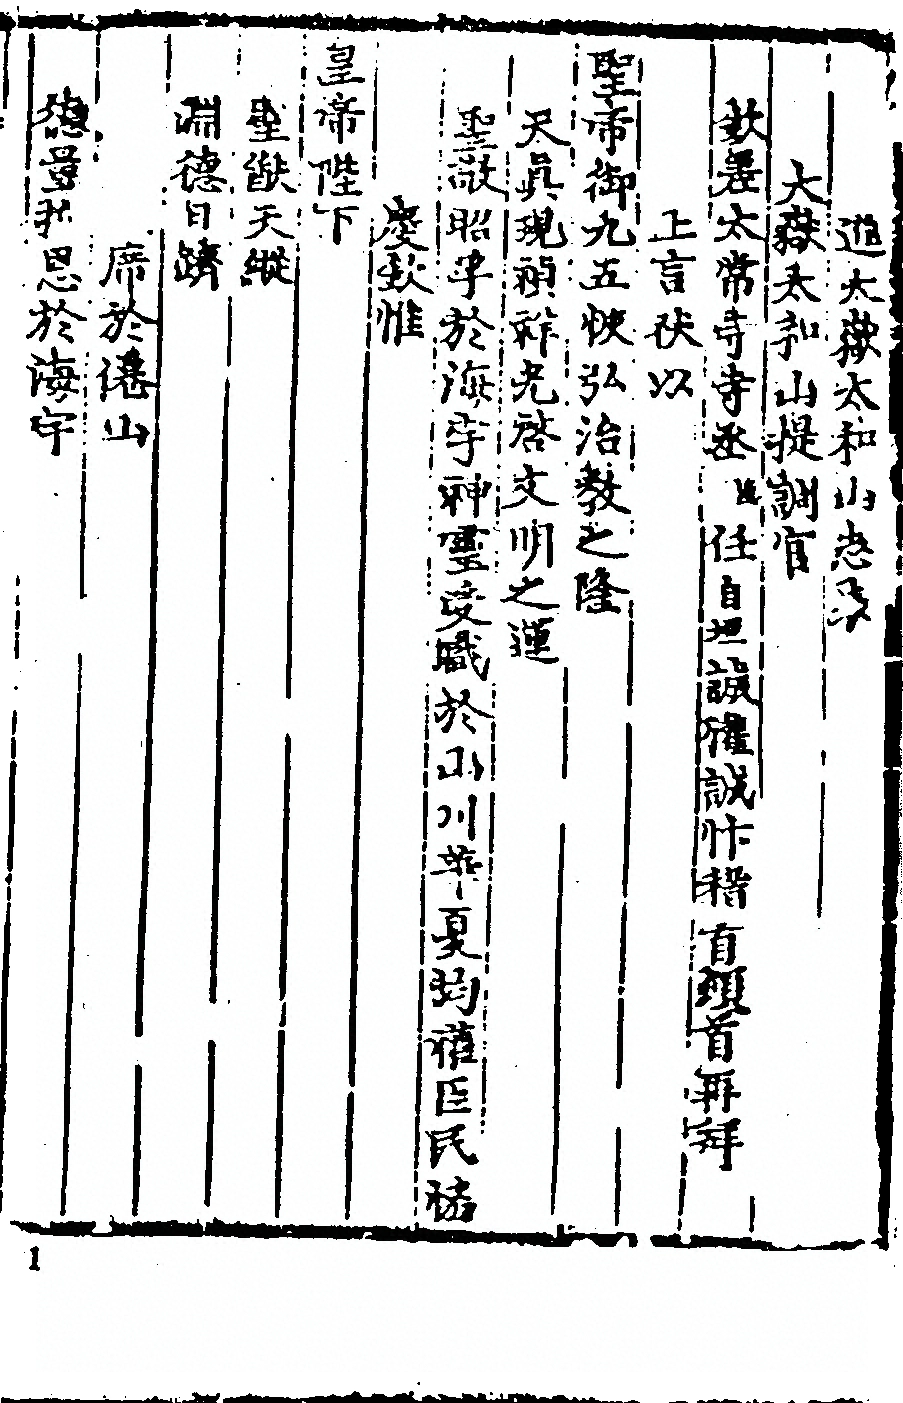 進太嶽太和山志表
大嶽太和山提調官
欽差太常寺寺丞臣任自垣誠懽誠忭稽首頓首再拜
上言伏以
聖帝御九五恢弘治教之隆
天眞現禎祥光啓文明之運
聖敬昭孚於海宇神靈受職於山川華夏均懽臣民協
慶欽惟
皇帝陛下
聖猷天縱
淵德日躋
席於僊山
德 思於海宇
1